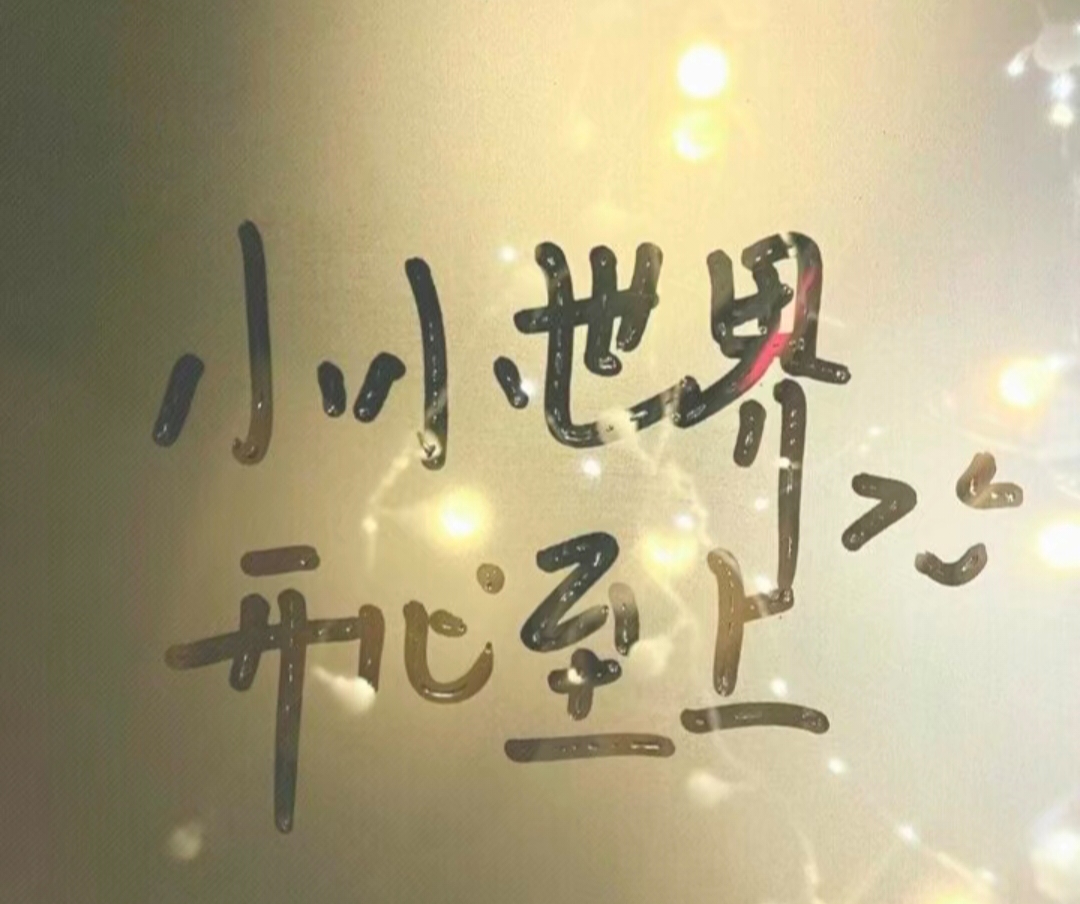 小小世界
开心至上